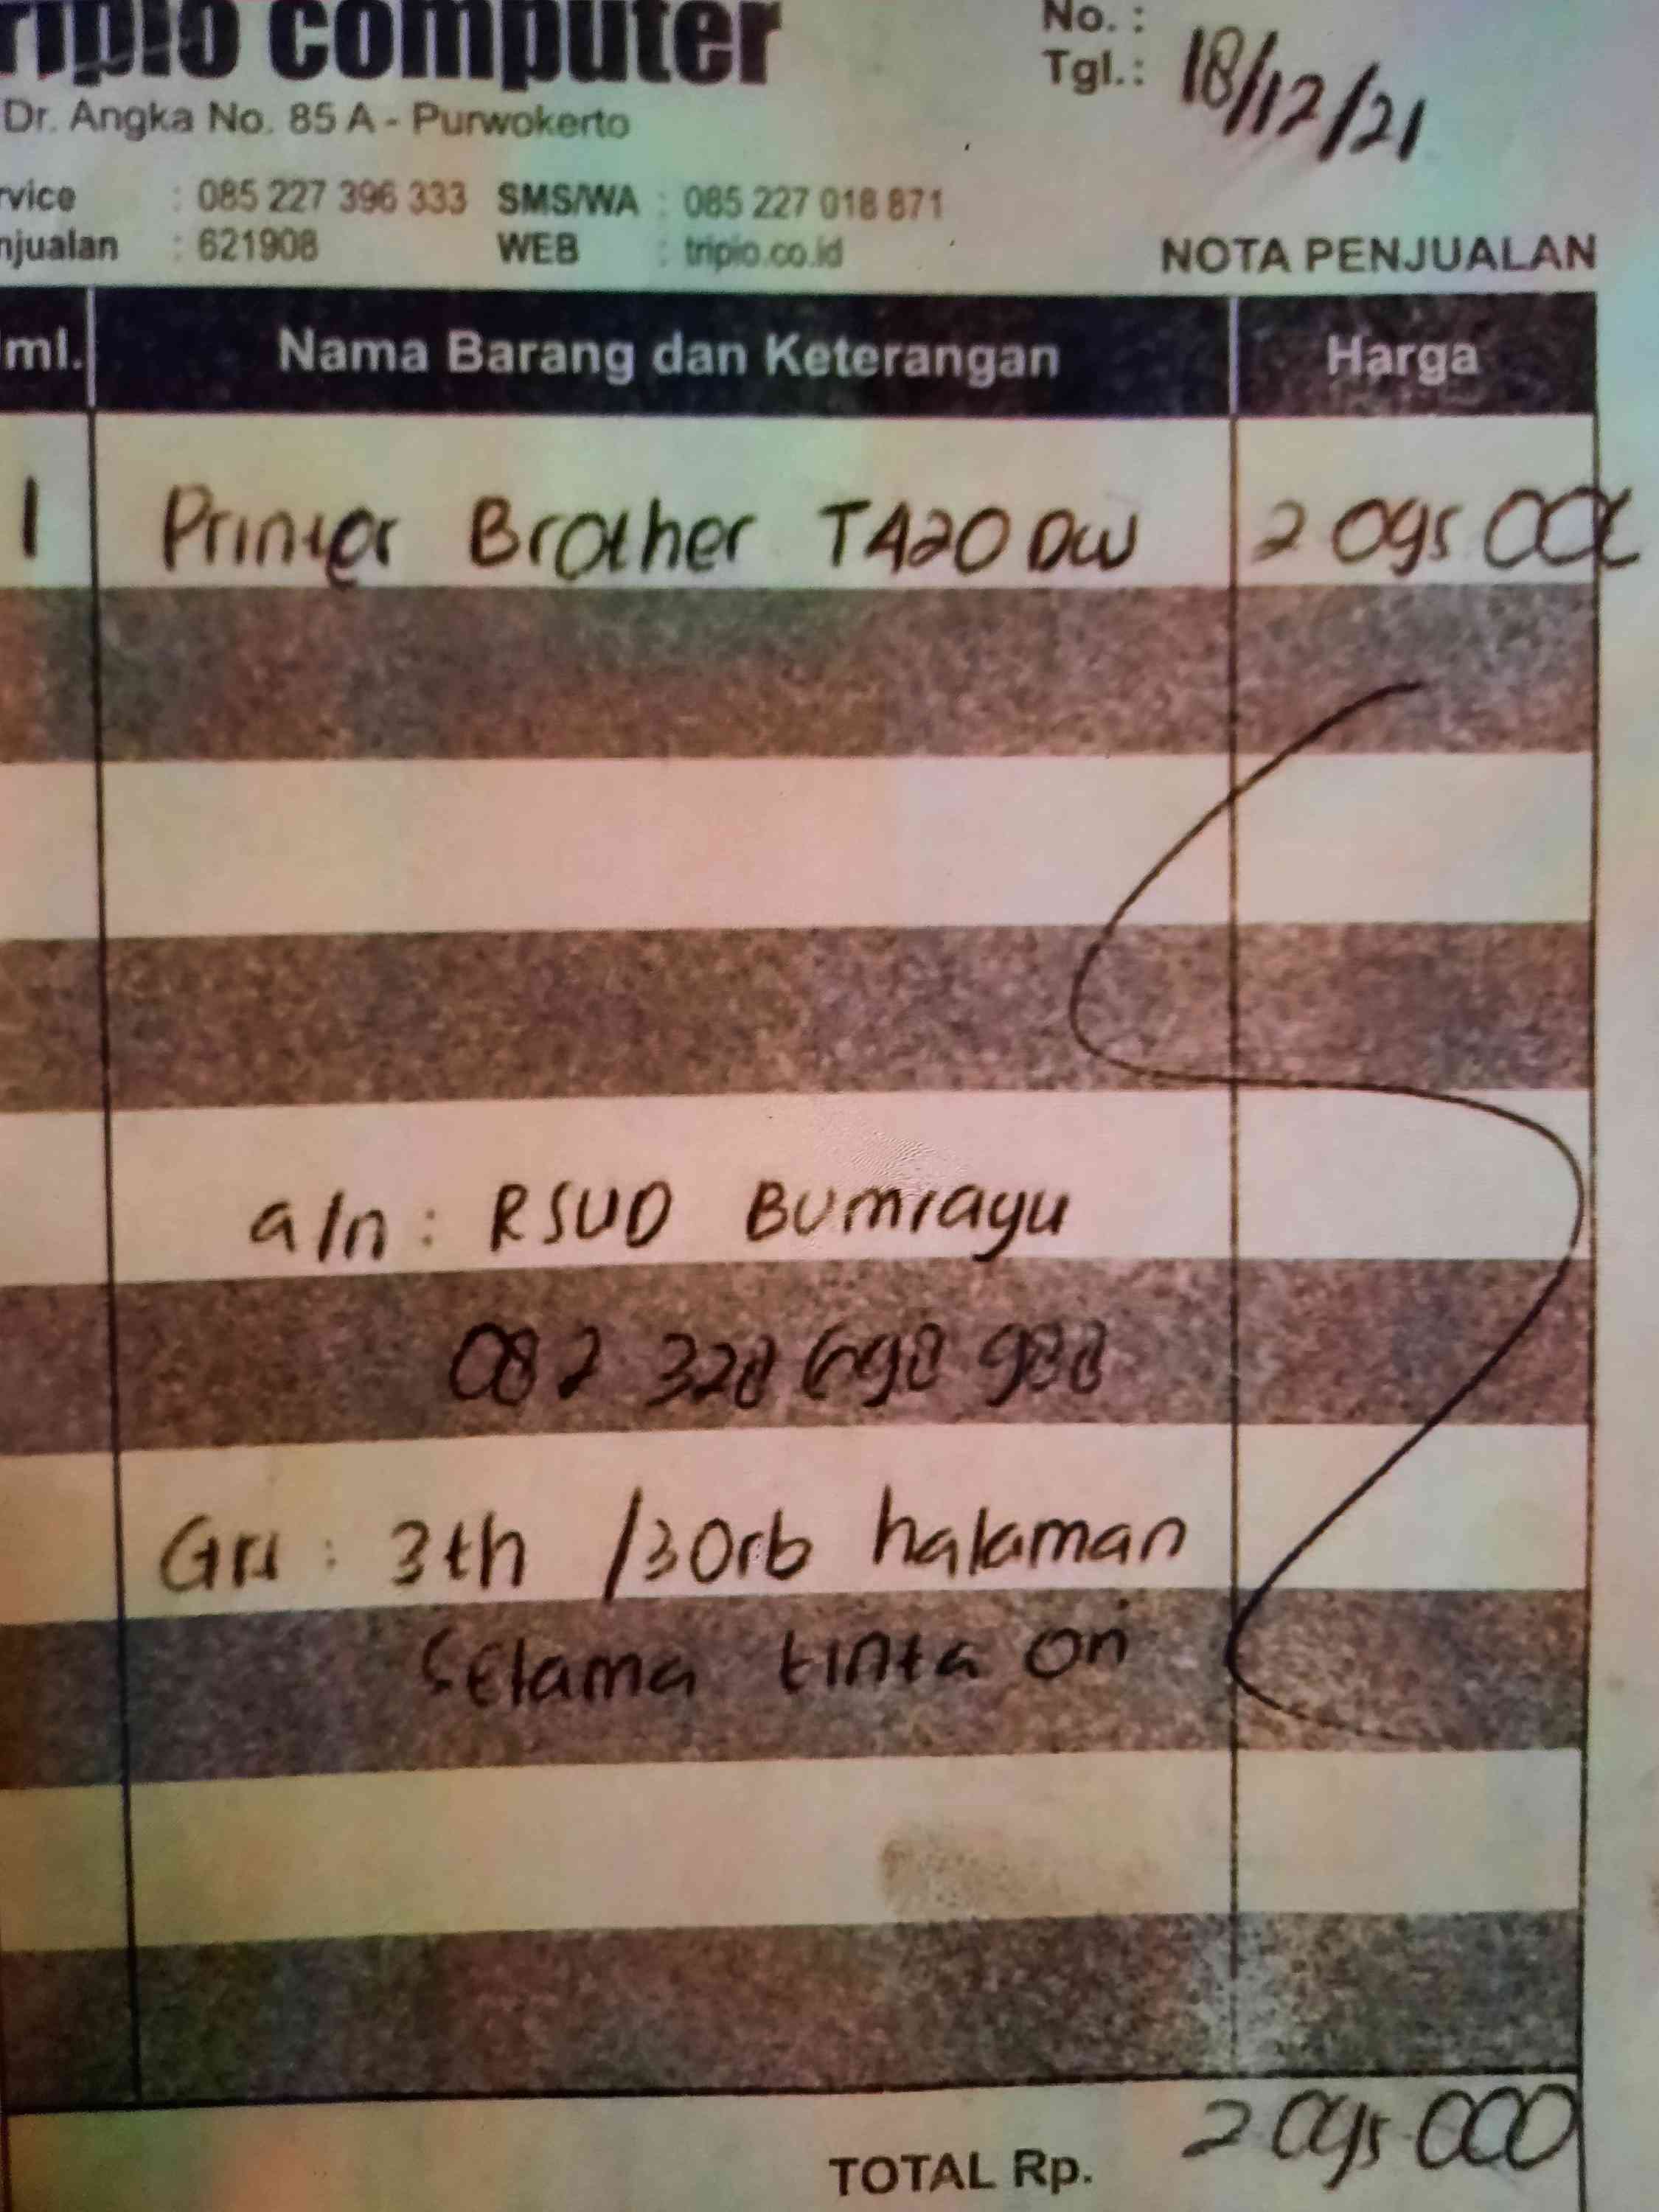 ripio computer
No. :
Tgl.: 18/12/21
Dr. Angka No. 85 A - Purwokerto
rvice : 085 227 396 333 SMS/WA : 085 227 018 871
njualan : 621908 WEB : tripio.co.id
NOTA PENJUALAN
ml. Nama Barang dan Keterangan Harga
1 Printer Brother T420 DW 2 095 000
a/n : RSUD Bumiayu
082 328 698 988
Grs : 3th / 30rb halaman
selama tinta ori
TOTAL Rp. 2 095 000